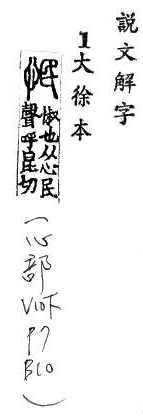 說文解字
1大徐本
怓也从心民
聲呼昆切
(心部 V10下 P7 B10)